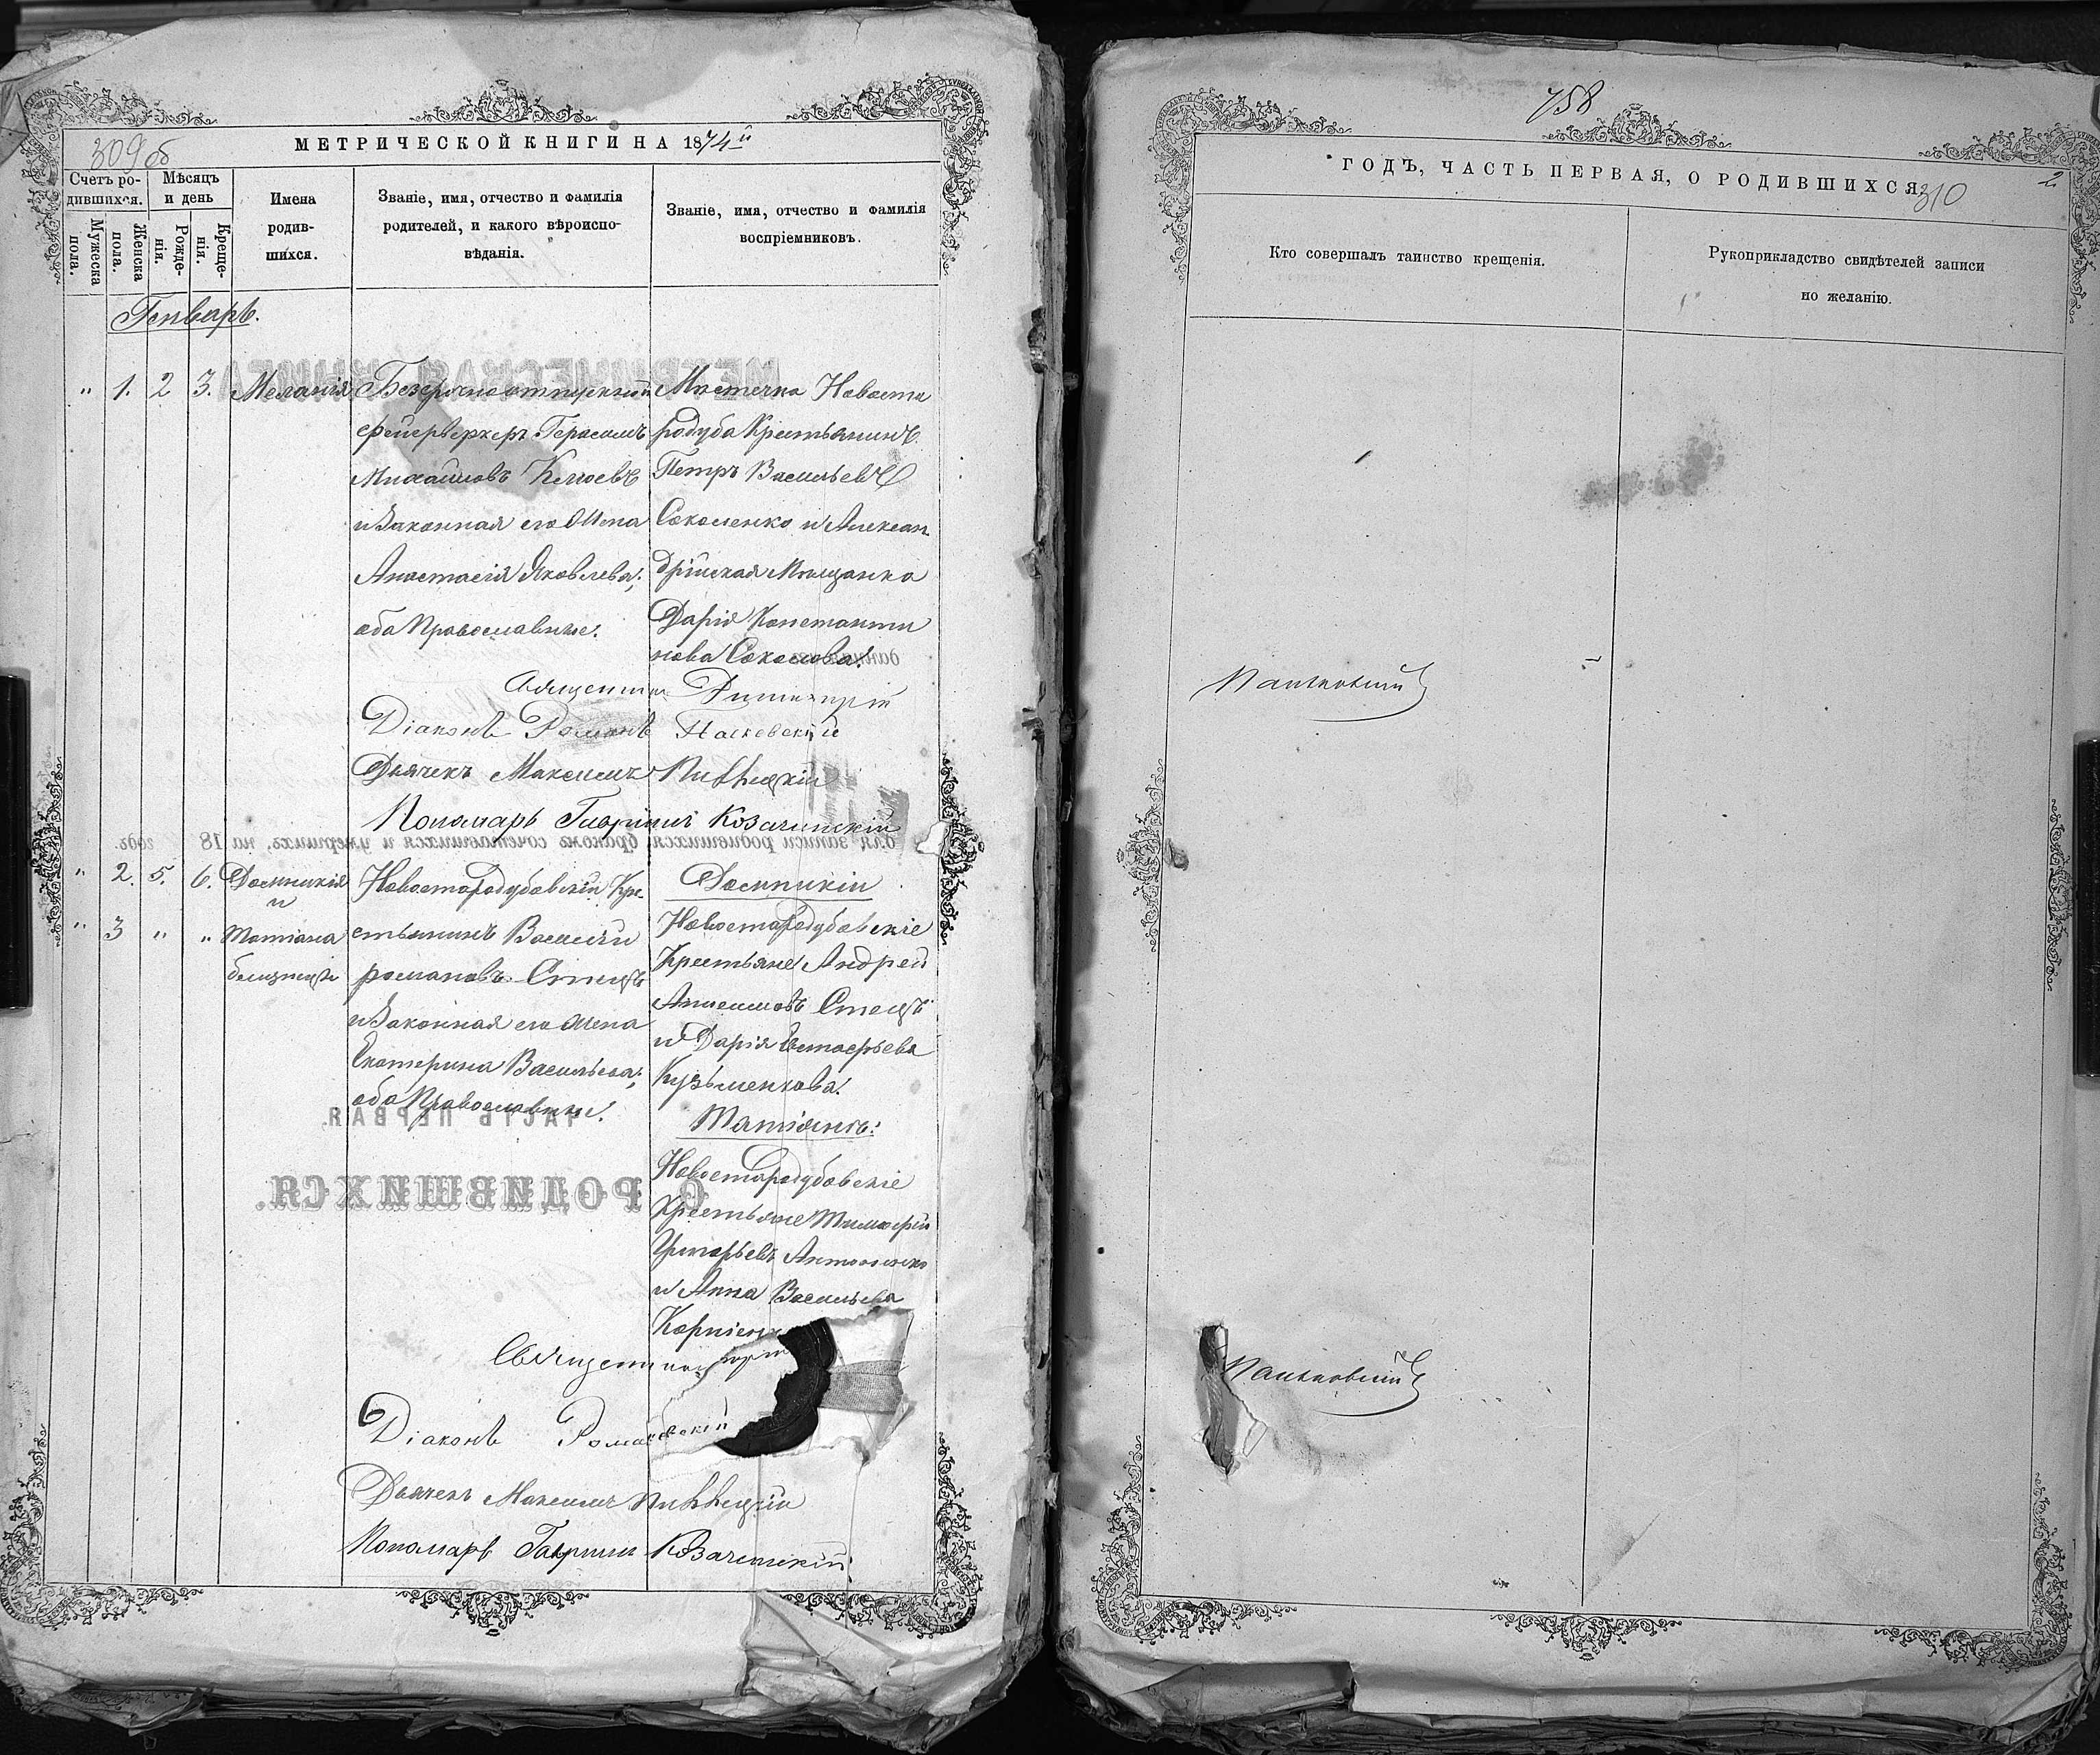 309 об
МЕТРИЧЕСКОЙ КНИГИ НА 1874й
Счетъ ро-
дившихся.
Мужеска
пола.
Женска
пола.
Мѣсяцъ
и день
Рожде-
нія.
Креще-
нія.
Имена
родив-
шихся.
Званіе, имя, отчество и фамилія
родителей, и какого вѣроиспо-
вѣданія.
Званіе, имя, отчество и фамилія
воспріемниковъ.
Генварь.
" 1. 2 3. Меланія
Безсрочноотпускный
фейерверкеръ Герасимъ
Михайловъ
и Законная его Жена
Анастасія Яковлева;
оба Православные.
Мѣстечка Новоста
родуба Крестьянинъ
Петръ Васильевъ
Соколенко и Алексан
дрійская Мѣщанка
Дарія Константи
нова Соколова.
Священникъ Димитрій
Діаконъ Романъ
Дьячекъ Максимъ
Пономарь Гавріилъ Козачинскій
" 2. 5. 6. Домникія
и
" 3 " " Татіана
близнецы
Новостародубовскій Кре
стьянинъ Василій
романовъ Стецъ
и Законная его Жена
Екатерина Васильева;
оба Православные.
Домникіи
Новостародубовскіе
Крестьяне Андрей
Анисимовъ Стецъ
и Дарія Евстафьева
Кузьменкова.
Татіаны:
Новостародубовскіе
Крестьяне Тимофей
Григорьевъ Антоненко
и Анна Васильева
Священникъ
Діаконъ
Дьячекъ Максимъ
Пономарь Гавріилъ Козачинскій
758
ГОДЪ, ЧАСТЬ ПЕРВАЯ, О РОДИВШИХСЯ
310
2
Кто совершалъ таинство крещенія.
Рукоприкладство свидѣтелей записи
по желанію.